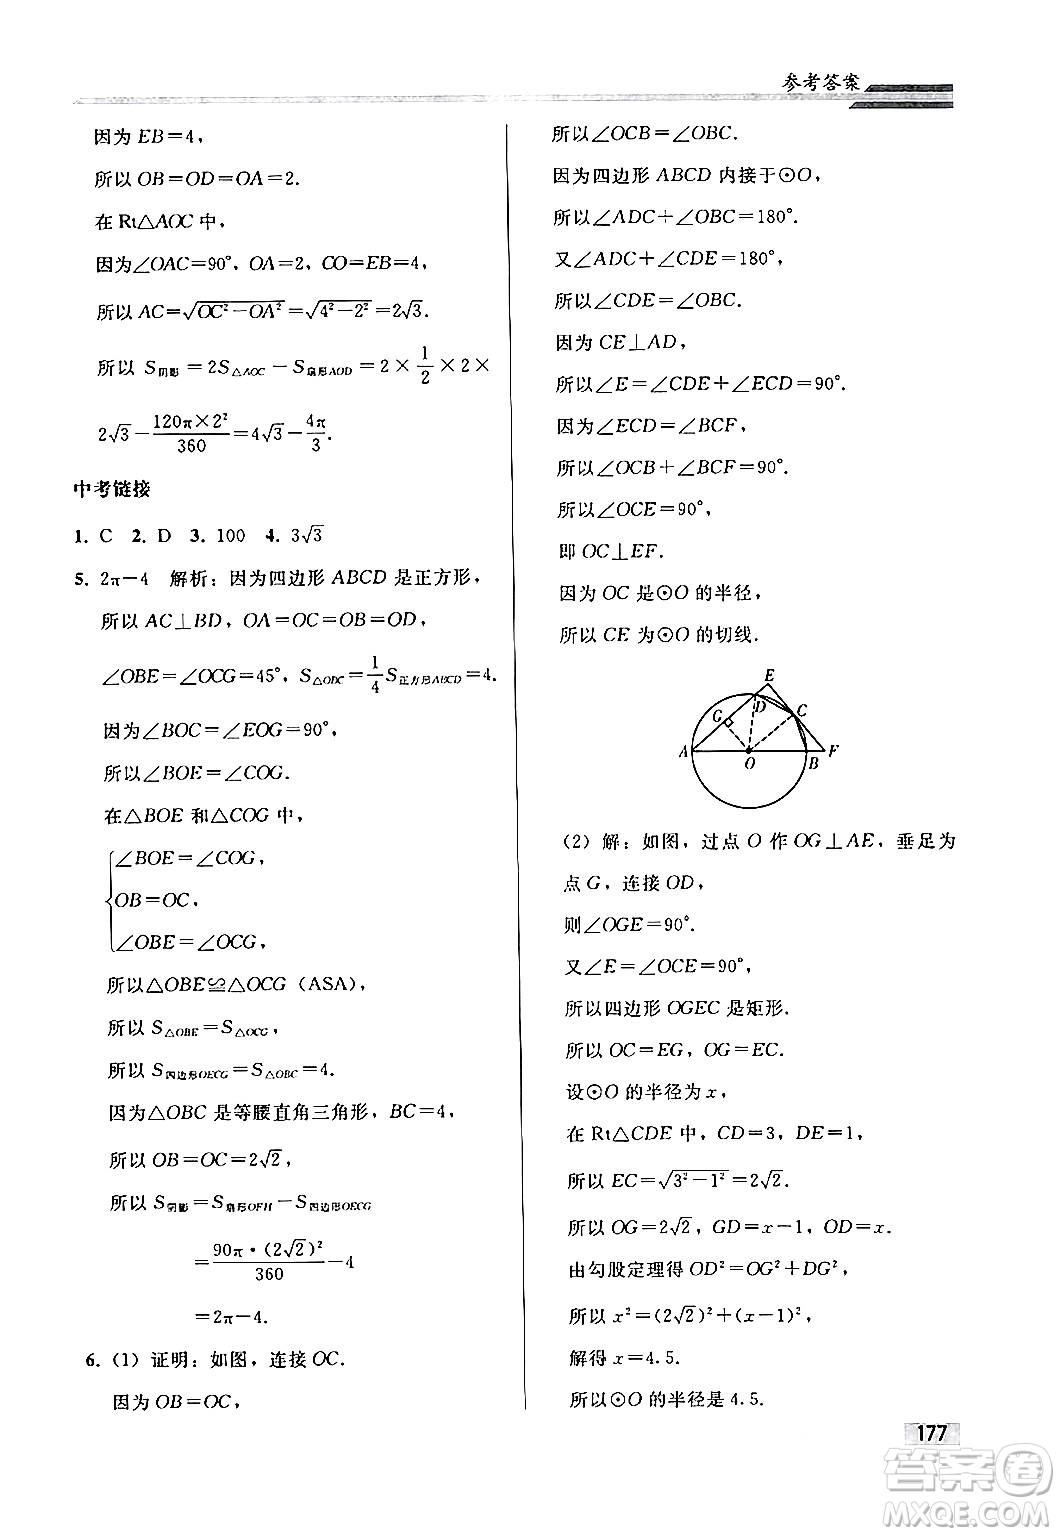 参考答案
因为 EB＝4，
所以 OB＝OD＝OA＝2.
在 Rt△AOC 中，
因为∠OAC＝90°，OA＝2，CO＝EB＝4，
所以 AC＝√(OC²－OA²)＝√(4²－2²)＝2√3.
所以 S阴影＝2S△AOC－S扇形AOD＝2×1/2×2×
2√3－120π×2²/360＝4√3－4π/3.
中考链接
1. C 2. D 3. 100 4. 3√3
5. 2π－4 解析：因为四边形 ABCD 是正方形，
所以 AC⊥BD，OA＝OC＝OB＝OD，
∠OBE＝∠OCG＝45°，S△OBC＝1/4S正方形ABCD＝4.
因为∠BOC＝∠EOG＝90°，
所以∠BOE＝∠COG.
在△BOE 和△COG 中，
∠BOE＝∠COG，
OB＝OC，
∠OBE＝∠OCG，
所以△OBE≌△OCG（ASA），
所以 S△OBE＝S△OCG，
所以 S四边形OECG＝S△OBC＝4.
因为△OBC 是等腰直角三角形，BC＝4，
所以 OB＝OC＝2√2，
所以 S阴影＝S扇形OFH－S四边形OECG
＝90π·(2√2)²/360－4
＝2π－4.
6.（1）证明：如图，连接 OC.
因为 OB＝OC，
所以∠OCB＝∠OBC.
因为四边形 ABCD 内接于⊙O，
所以∠ADC＋∠OBC＝180°.
又∠ADC＋∠CDE＝180°，
所以∠CDE＝∠OBC.
因为 CE⊥AD，
所以∠E＝∠CDE＋∠ECD＝90°.
因为∠ECD＝∠BCF，
所以∠OCB＋∠BCF＝90°.
所以∠OCE＝90°，
即 OC⊥EF.
因为 OC 是⊙O 的半径，
所以 CE 为⊙O 的切线.
E
D
G
C
A
O
B
F
（2）解：如图，过点 O 作 OG⊥AE，垂足为
点 G，连接 OD，
则∠OGE＝90°.
又∠E＝∠OCE＝90°，
所以四边形 OGEC 是矩形.
所以 OC＝EG，OG＝EC.
设⊙O 的半径为 x，
在 Rt△CDE 中，CD＝3，DE＝1，
所以 EC＝√(3²－1²)＝2√2.
所以 OG＝2√2，GD＝x－1，OD＝x.
由勾股定理得 OD²＝OG²＋DG²，
所以 x²＝(2√2)²＋(x－1)²，
解得 x＝4.5.
所以⊙O 的半径是 4.5.
177
答案圈
MXQE.COM